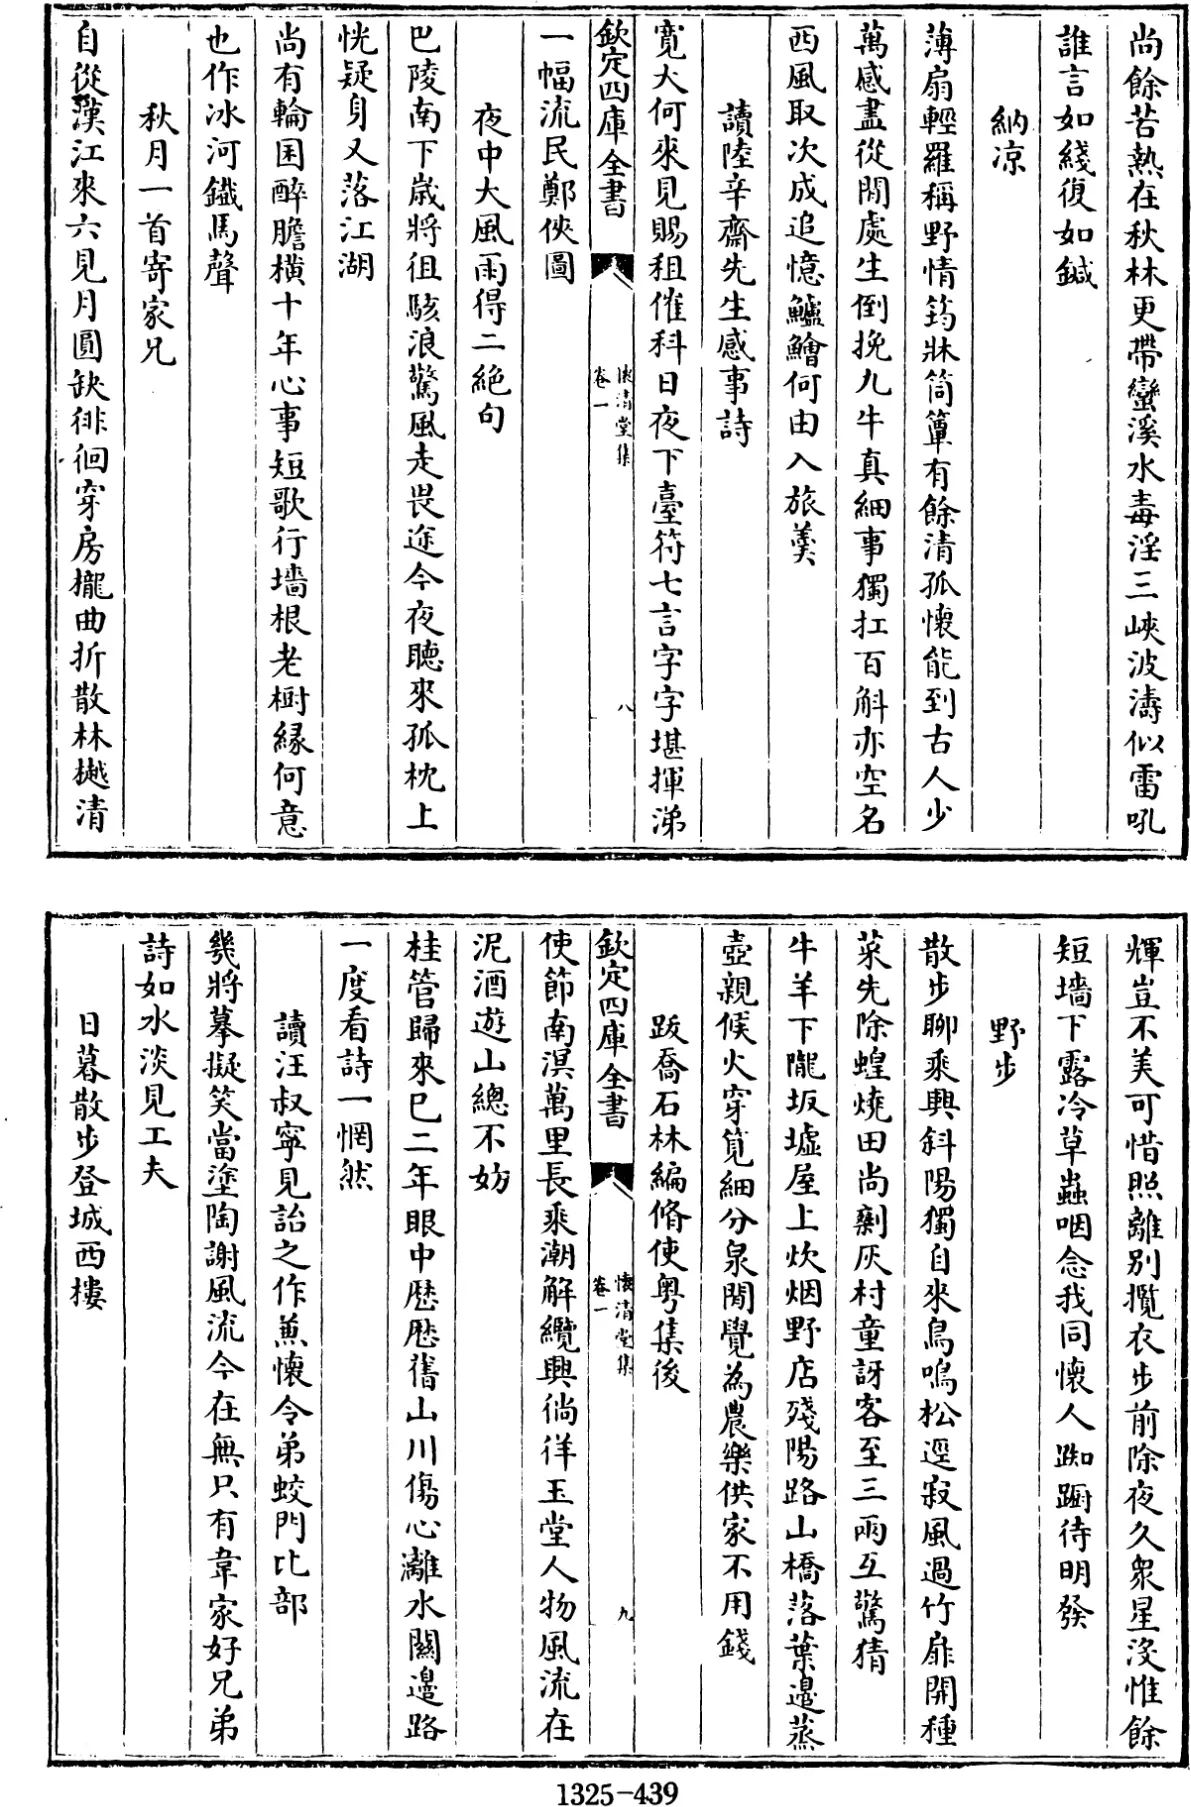 尚餘苦熱在秋林更帶蠻溪水毒淫三峽波濤似雷吼
誰言如綫復如鍼
納凉
薄扇輕羅稱野情筠牀筒簟有餘清孤懷能到古人少
萬感盡從閒處生倒挽九牛真細事獨扛百斛亦空名
西風取次成追憶鱸鱠何由入旅羮
讀陸辛齋先生感事詩
寛大何來見賜租催科日夜下臺符七言字字堪揮涕
欽定四庫全書
懷清堂集
卷一
八
一幅流民鄭俠圖
夜中大風雨得二絶句
巴陵南下歲將徂駭浪驚風走畏途今夜聽來孤枕上
恍疑身又落江湖
尚有輪囷醉膽横十年心事短歌行墻根老樹縁何意
也作冰河鐵馬聲
秋月一首寄家兄
自從漢江來六見月圓缺徘徊穿房櫳曲折散林樾清
輝豈不美可惜照離别攬衣步前除夜久衆星没惟餘
短墻下露冷草蟲咽念我同懷人踟蹰待明發
野步
散步聊乘興斜陽獨自來鳥鳴松逕寂風過竹扉開種
菜先除蝗燒田尚剩灰村童訝客至三兩互驚猜
牛羊下隴坂墟屋上炊烟野店殘陽路山橋落葉邊蒸
壺親候火穿筧細分泉閒覺為農樂供家不用錢
跋喬石林編脩使粤集後
欽定四庫全書
懷清堂集
卷一
九
使節南溟萬里長乘潮解纜興徜徉玉堂人物風流在
泥酒遊山總不妨
桂管歸來已二年眼中歴歴舊山川傷心灕水關邊路
一度看詩一惘然
讀汪叔寧見詒之作兼懷令弟蛟門比部
幾將摹擬笑當塗陶謝風流今在無只有韋家好兄弟
詩如水淡見工夫
日暮散步登城西樓
1325-439